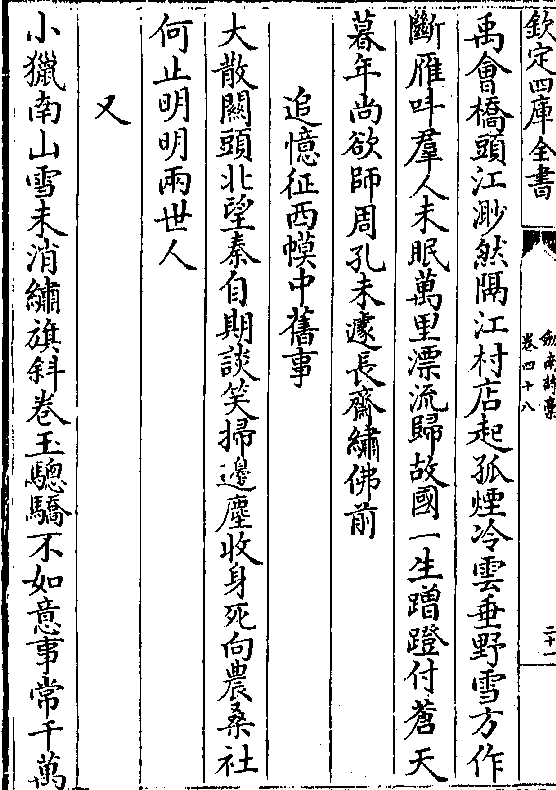 欽定四庫全書
劍南詩藁
卷四十八
二十一
禹會橋頭江渺然隔江村店起孤煙冷雲垂野雪方作
斷雁呌羣人未眠萬里漂流歸故國一生蹭蹬付蒼天
暮年尚欲師周孔未遽長齋繡佛前
追憶征西幙中舊事
大散關頭北望秦自期談笑掃邊塵收身死向農桑社
何止明明兩世人
又
小獵南山雪未消繡旗斜卷玉驄驕不如意事常千萬